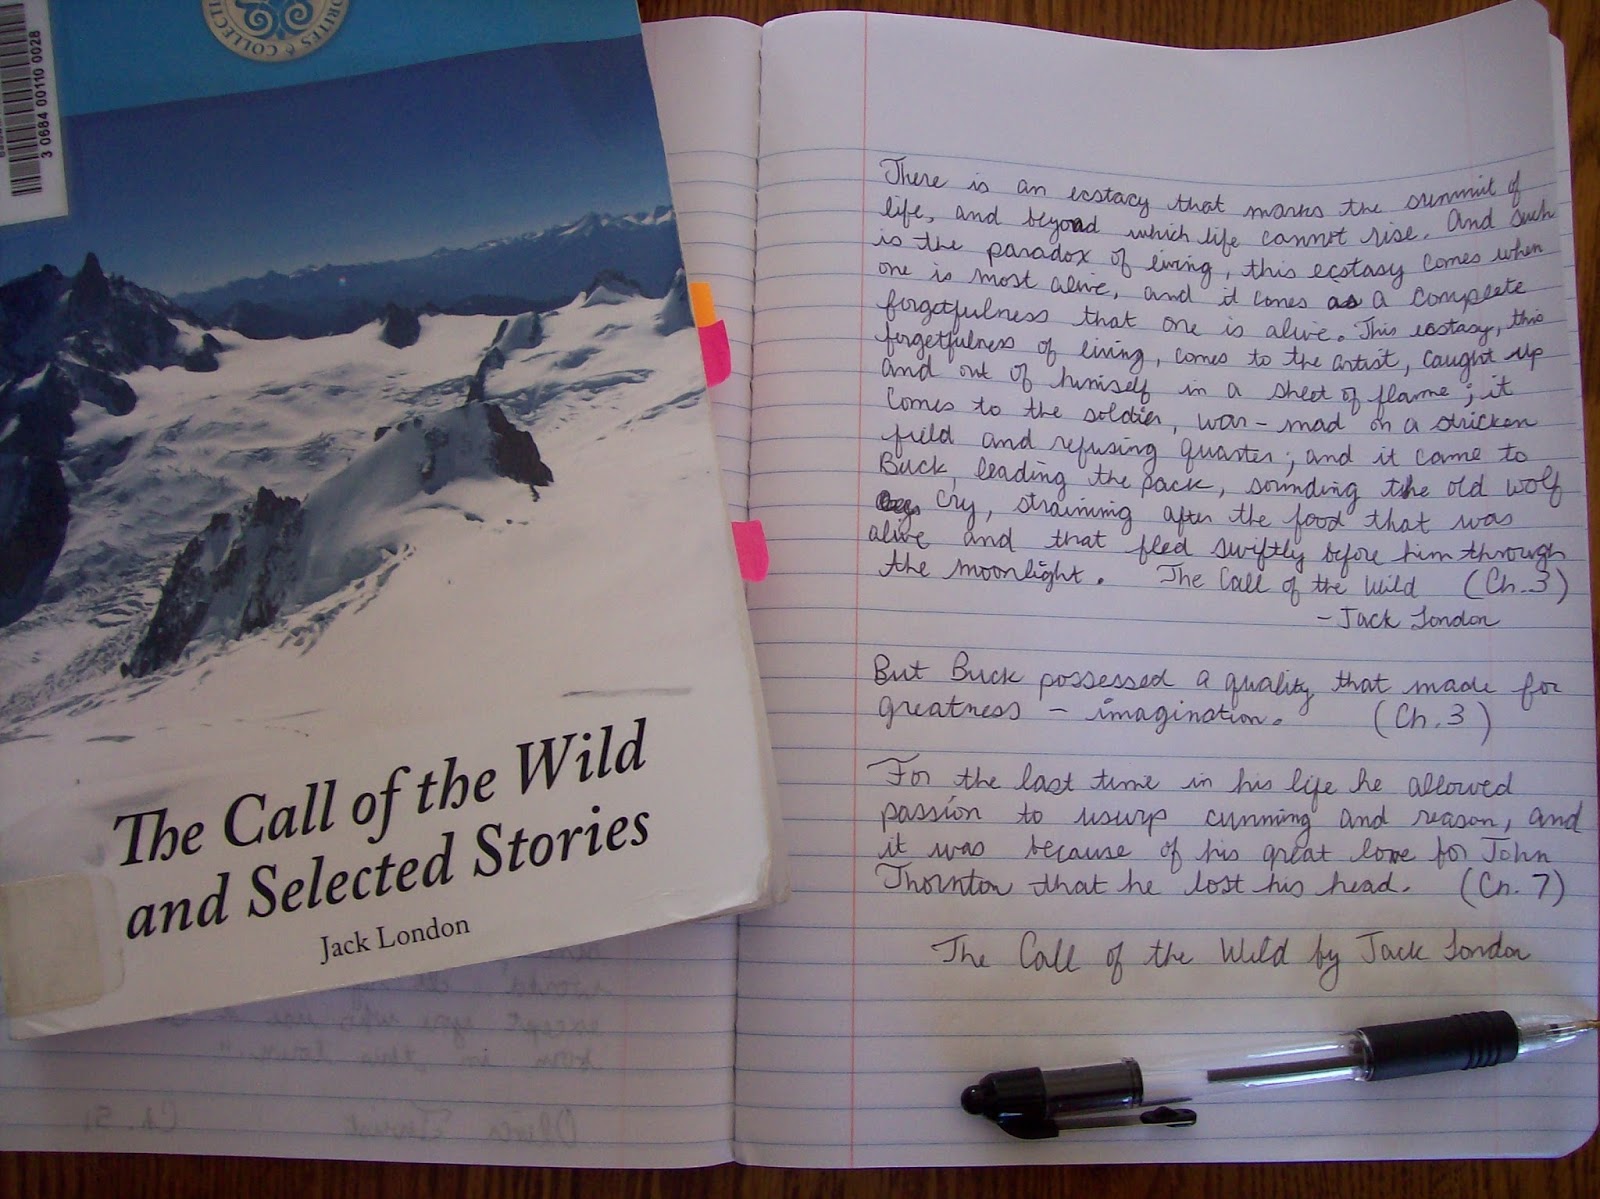 ORITES & COLLECTI
3 0684 00110 0028
The Call of the Wild
and Selected Stories
Jack London
There is an ecstacy that marks the summit of
life, and beyond which life cannot rise. And such
is the paradox of living, this ecstasy comes when
one is most alive, and it comes as a complete
forgetfulness that one is alive. This ecstasy, this
forgetfulness of living, comes to the artist, caught up
and out of himself in a sheet of flame; it
comes to the soldier, war-mad on a stricken
field and refusing quarter; and it came to
Buck, leading the pack, sounding the old wolf
cry, straining after the food that was
alive and that fled swiftly before him through
the moonlight. The Call of the Wild (Ch. 3)
- Jack London
But Buck possessed a quality that made for
greatness - imagination. (Ch. 3)
For the last time in his life he allowed
passion to usurp cunning and reason, and
it was because of his great love for John
Thornton that he lost his head. (Ch. 7)
The Call of the Wild by Jack London